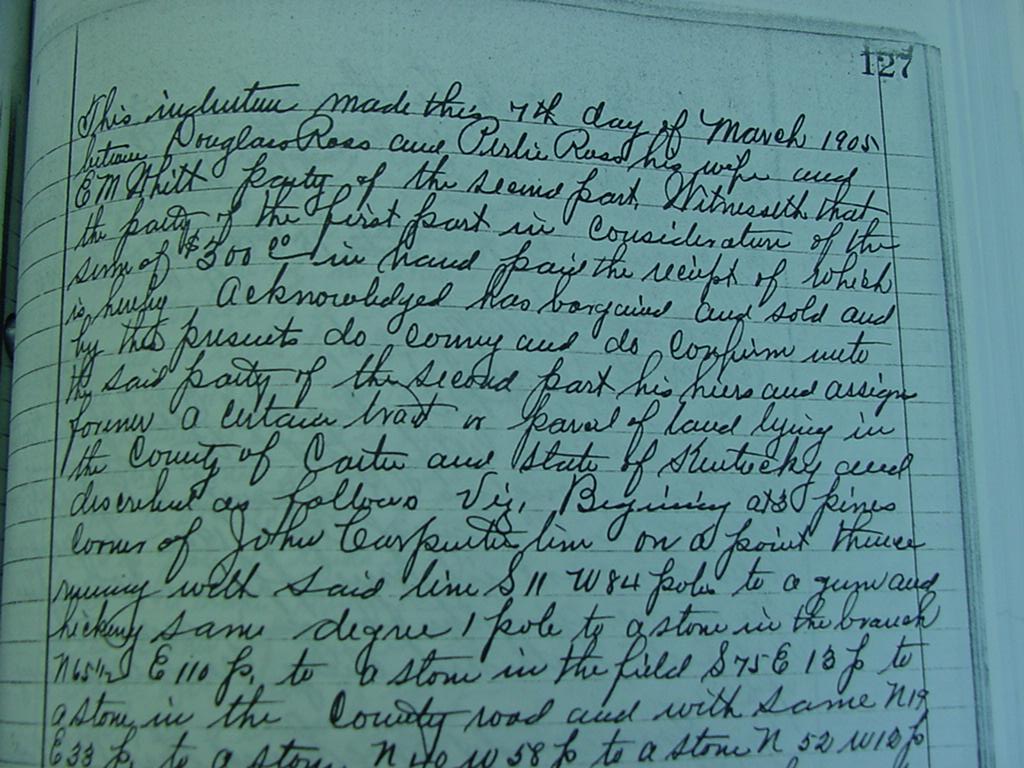 127
This indenture made this 7th day of March 1905
between Douglass Ross and Perlie Ross his wife and
E M Whitt party of the second part, Witnesseth that
the party of the first part in Consideration of the
sum of $300 00 in hand paid the reciept of which
is hereby Acknowledged has bargained and sold and
by these presents do convey and do Confirm unto
the said party of the second part his hiers and assigns
forever a certain tract or parcel of land lying in
the County of Carter and State of Kentucky and
discribed as follows Viz, Begining at 3 pines
corner of John Carpenter line on a point thence
runing with said line S 11 W 84 poles to a gum and
hickory same degree 1 pole to a stone in the branch
N 65 1/2 E 110 p, to a stone in the field S 75 E 13 p to
a stone in the County road and with same N 19
E 33 p, to a stone, N 40 W 58 p to a stone N 52 W 12 p